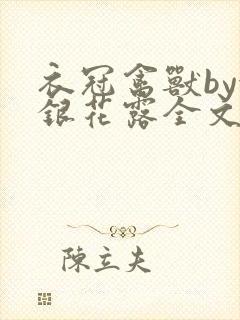 衣冠禽獸by
銀花露全文
陳立夫